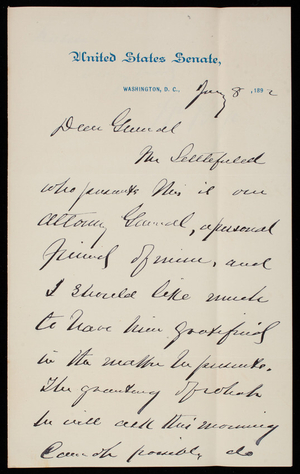 United States Senate,
WASHINGTON, D. C., Jany 8, 1892
Dear General
Mr Littlefield
who presents this is our
Attorny General, a personal
friend of mine, and
I should like much
to have him gratified
in the matter he presents.
The granting of which
he will ask this morning
cannot possibly do